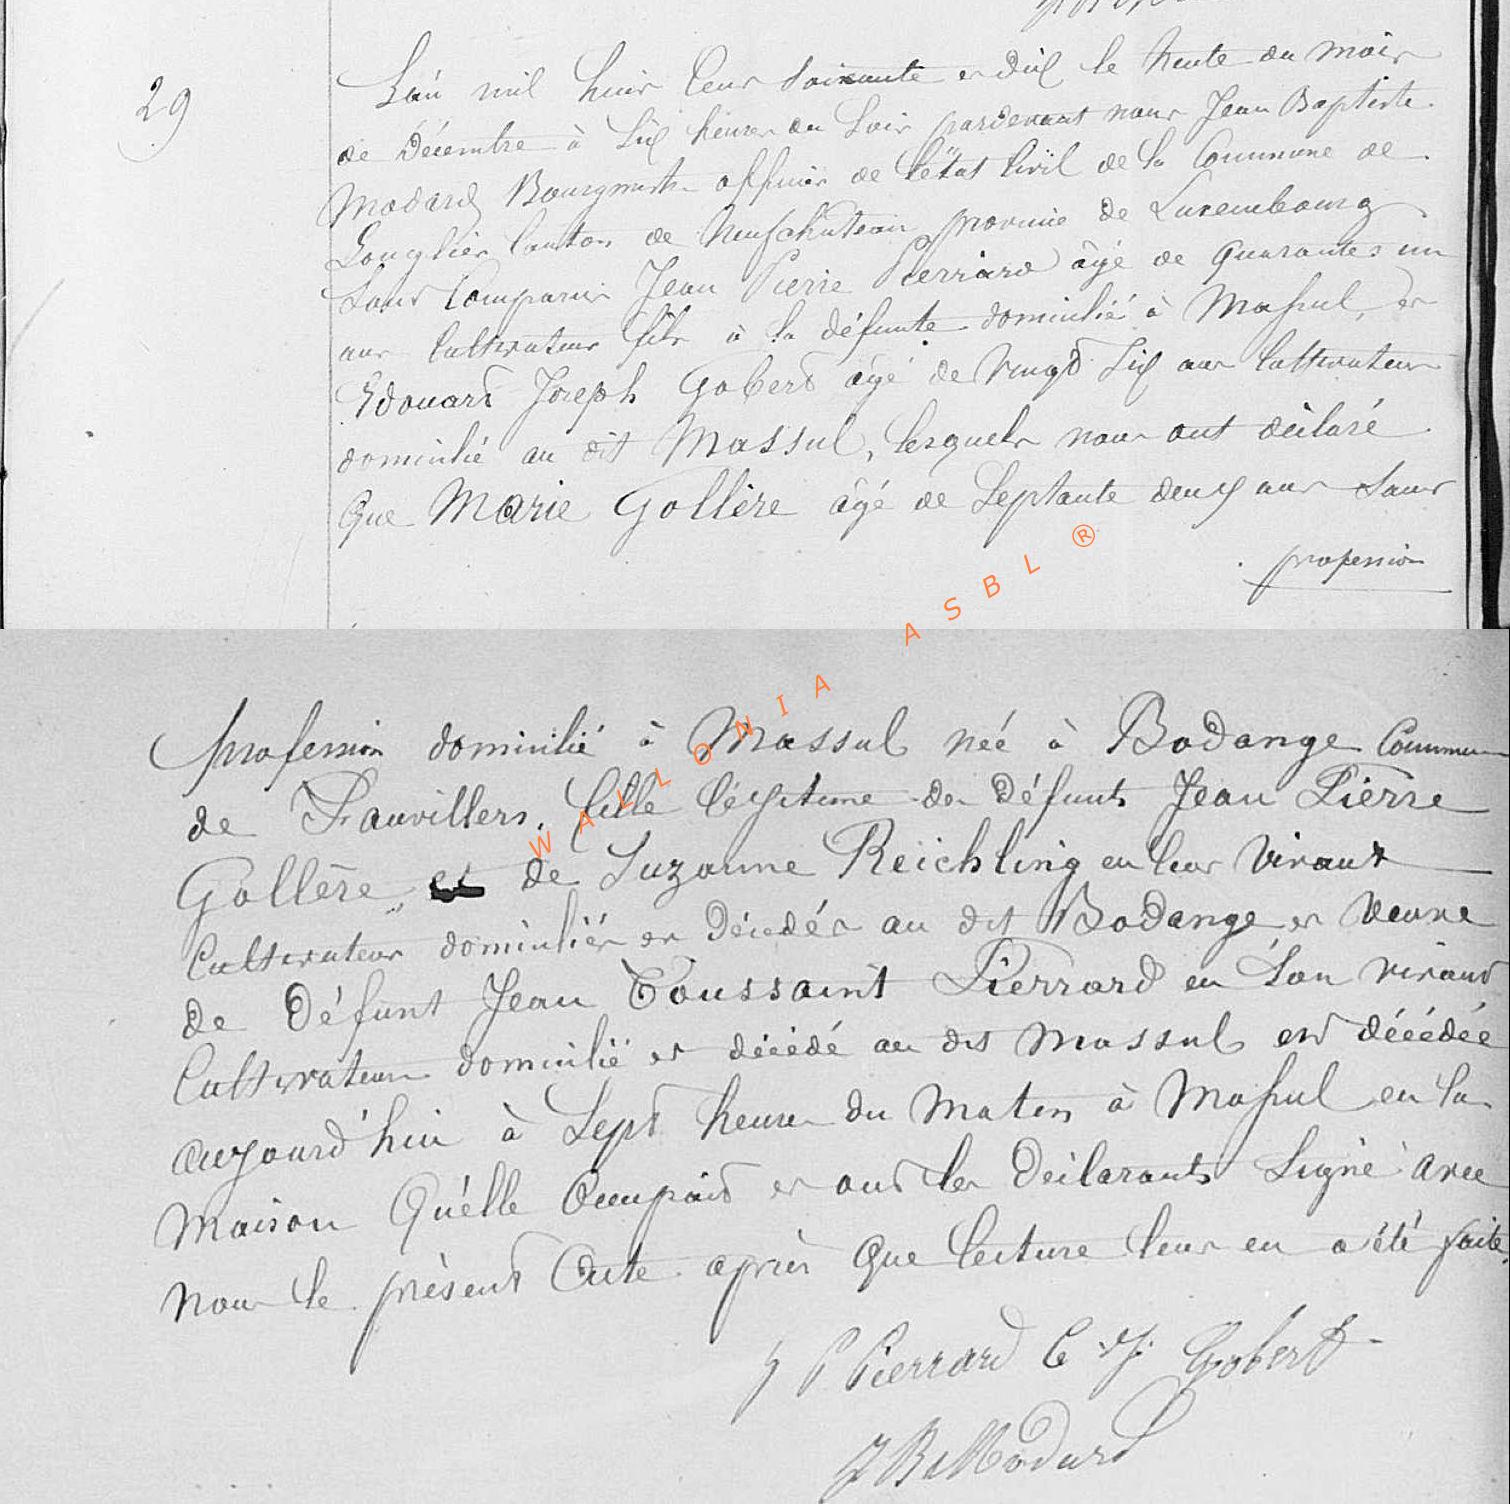 29
L'an mil huit Cent Soixante et dix le trente du mois
de Décembre à Six heures du Soir pardevant nous Jean Baptiste
Modard Bourgmestre officier de l'état Civil de la Commune de
Longlier Canton de Neufchâteau province de Luxembourg
Sont Comparus Jean Pierre Pierrard âgé de Quarante un
ans Cultivateur fils à la défunte domicilié à Massul, et
Edouard Joseph Gobert âgé de Vingt Six ans Cultivateur
domicilié au dit Massul, lesquels nous ont déclaré
Que Marie Gollère âgé de Septante deux ans Sans
profession
profession domicilié à Massul née à Bodange Commune
de Fauvillers, fille légitime de Défunts Jean Pierre
Gollère et de Suzanne Reichling en leur Vivant
Cultivateur domiciliés et Décédés au dit Bodange et Veuve
de Défunt Jean Toussaint Pierrard en Son vivant
Cultivateur domicilié et décédé au dit Massul est décédée
aujourd'hui à Sept heures du Matin à Massul en la
Maison Qu'elle Occupait et ont les Déclarants Signé avec
nous le présent Acte après Que lecture leur en a été faite.
J P Pierrard E. J. Gobert
J B Modard
WALLONIA ASBL ®